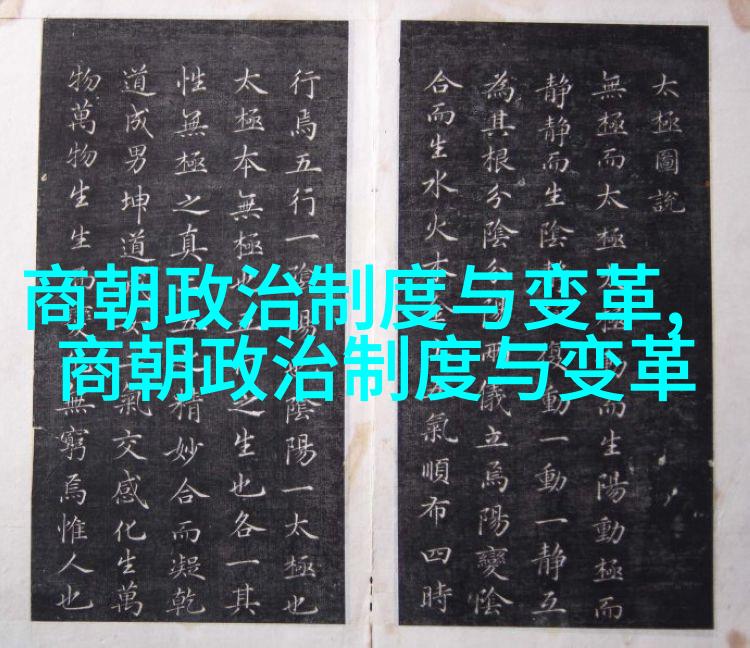 商朝政治制度与变革,
商朝政治制度与变革
太極圖說
無極而太極動而生陽動極而
静静而生陰復動一動一静互
為其根分陰分陽兩儀立焉陽變陰
合而生水火木氣順布四時
行焉五行一陰陽陰陽一太極也
太極本無極也之生也各一其
性無極之真五精妙合而凝乾
道成男坤道氣交感化生萬
物萬物生生而無窮焉惟人也